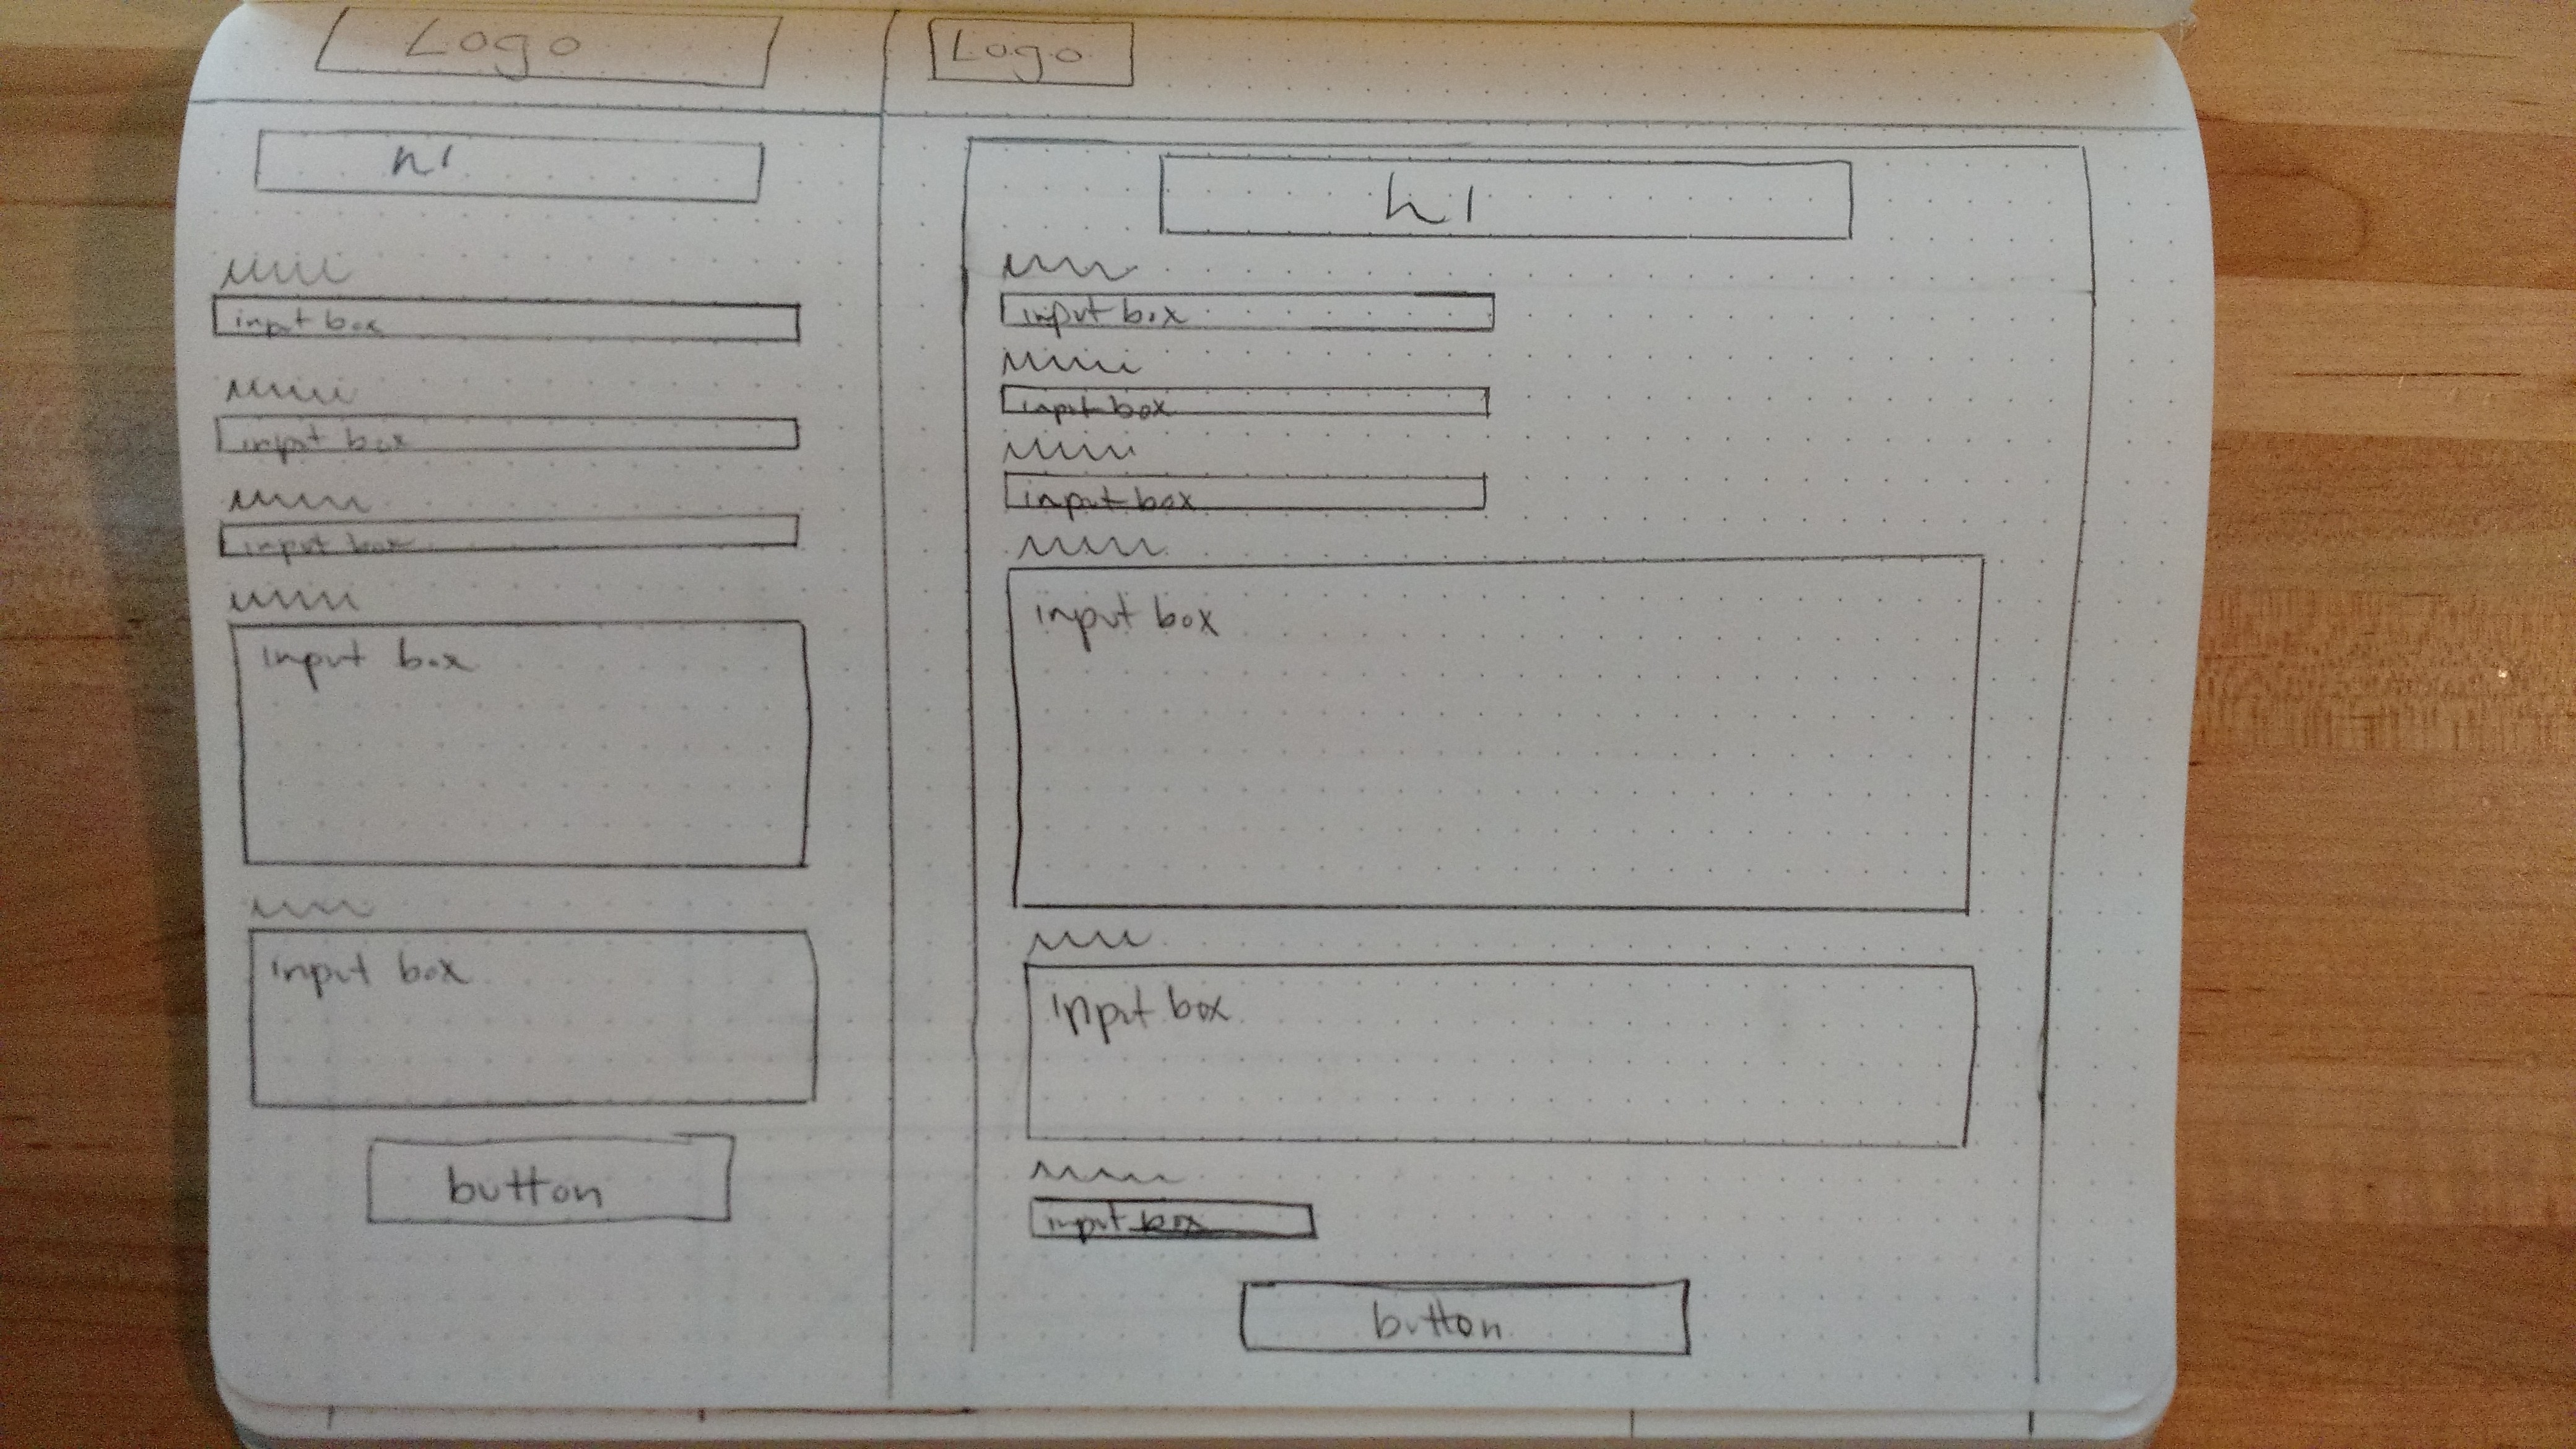 Logo
h1
input box
input box
input box
input box
input box
button
Logo
h1
input box
input box
input box
input box
input box
input box
button